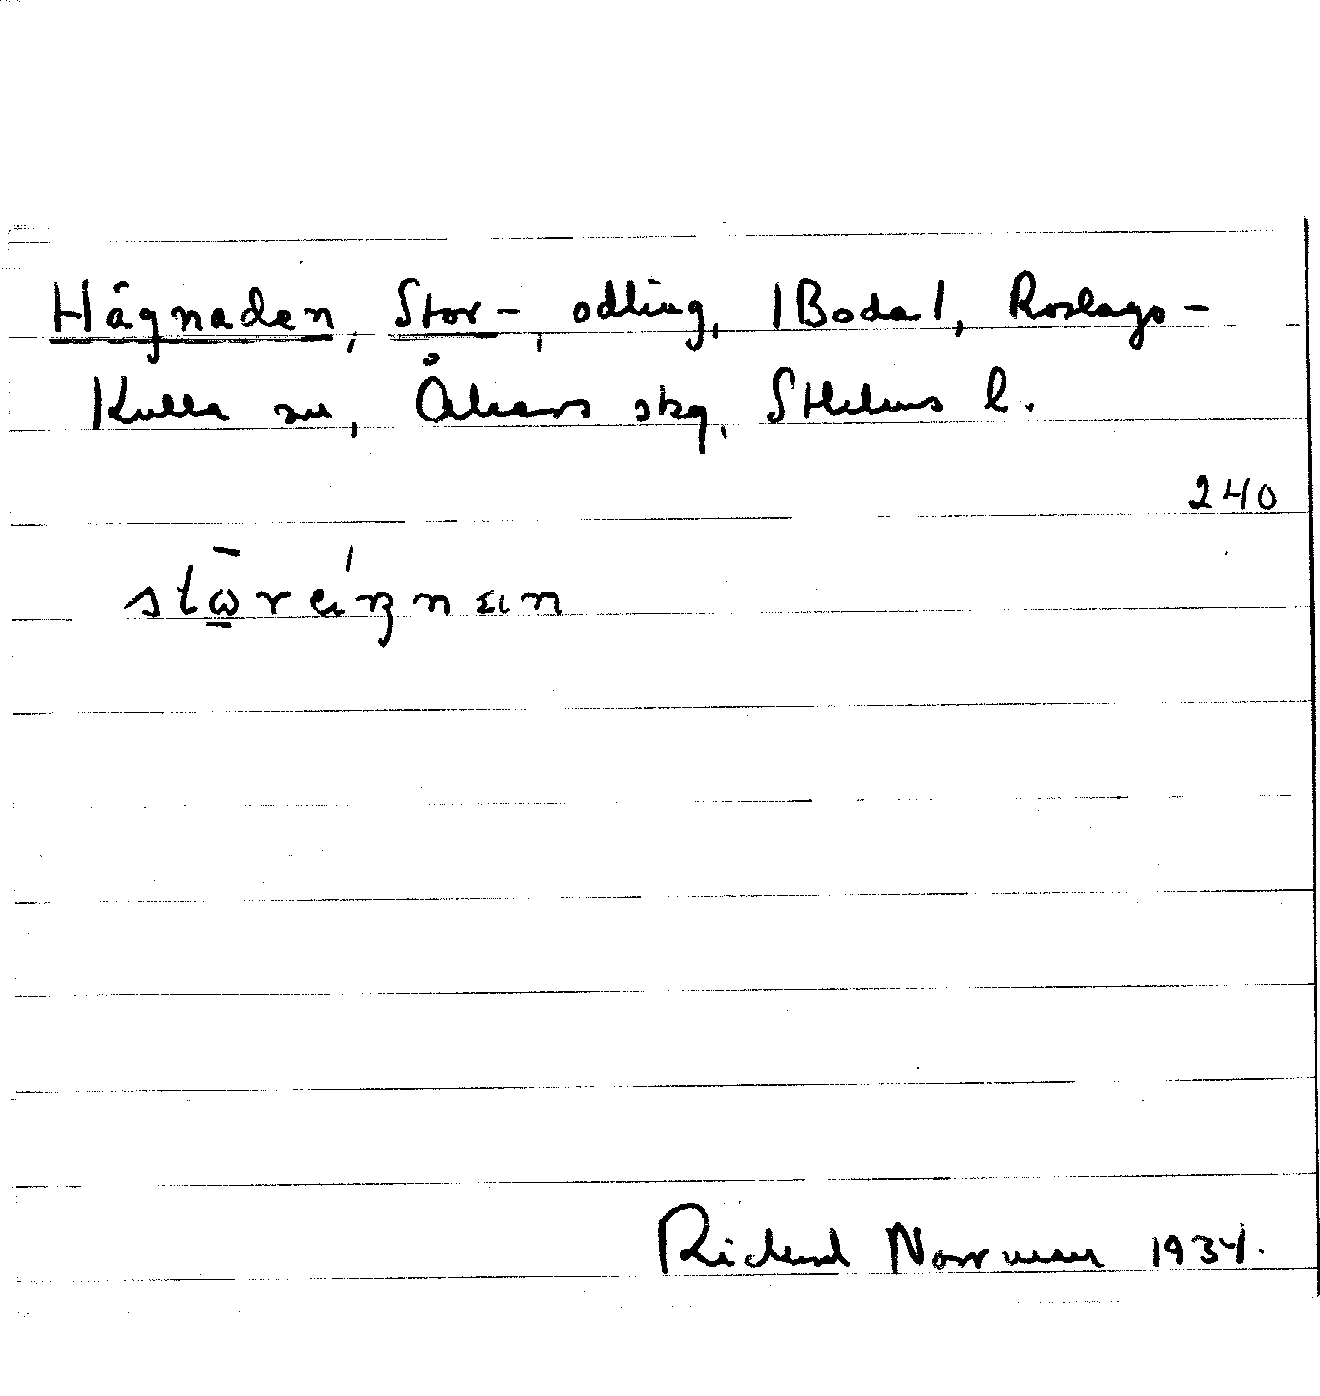 Hägnaden, Stor-, odling, |Boda|, Roslags-
Kulla sn, Åkers skg, Sthlms l.
240
Rickard Norrman 1934.